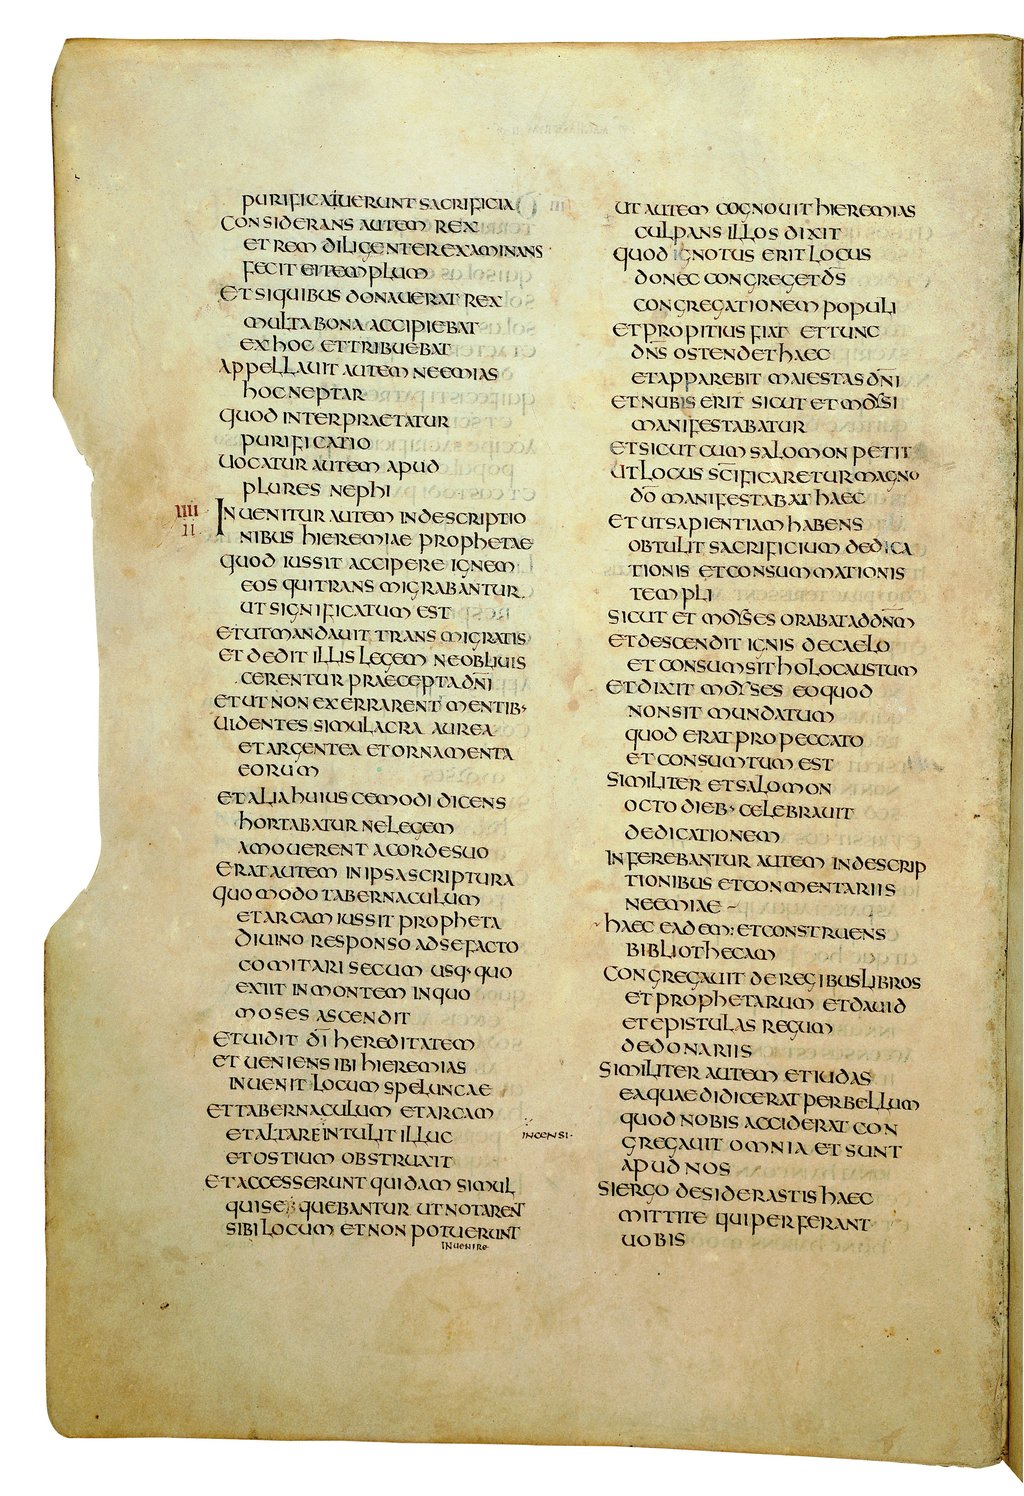 PURIFICAUERUNT SACRIFICIA
CONSIDERANS AUTEM REX
ET REM DILIGENTER EXAMINANS
FECIT EI TEMPLUM
ET SI QUIBUS DONAUERAT REX
MULTA BONA ACCIPIEBAT
EX HOC ET TRIBUEBAT
APPELLAUIT AUTEM NEEMIAS
HOC NEPTAR
QUOD INTERPRAETATUR
PURIFICATIO
UOCATUR AUTEM APUD
PLURES NEPHI
IIII
II
INUENITUR AUTEM IN DESCRIPTIO
NIBUS HIEREMIAE PROPHETAE
QUOD IUSSIT ACCIPERE IGNEM
EOS QUI TRANSMIGRABANTUR
UT SIGNIFICATUM EST
ET UT MANDAUIT TRANSMIGRATIS
ET DEDIT ILLIS LEGEM NE OBLIUIS
CERENTUR PRAECEPTA DN̄I
ET UT NON EXERRARENT MENTIB·
UIDENTES SIMULACRA AUREA
ET ARGENTEA ET ORNAMENTA
EORUM
ET ALIA HUIUSCEMODI DICENS
HORTABATUR NE LEGEM
AMOUERENT A CORDE SUO
ERAT AUTEM IN IPSA SCRIPTURA
QUOMODO TABERNACULUM
ET ARCAM IUSSIT PROPHETA
DIUINO RESPONSO AD SE FACTO
COMITARI SECUM USQ· QUO
EXIIT IN MONTEM IN QUO
MOSES ASCENDIT
ET UIDIT DĪ HEREDITATEM
ET UENIENS IBI HIEREMIAS
INUENIT LOCUM SPELUNCAE
ET TABERNACULUM ET ARCAM
ET ALTARE INTULIT ILLUC
INCENSI·
ET OSTIUM OBSTRUXIT
ET ACCESSERUNT QUIDAM SIMUL
QUI SEQUEBANTUR UT NOTARENT
SIBI LOCUM ET NON POTUERUNT
INUENIRE
UT AUTEM COGNOUIT HIEREMIAS
CULPANS ILLOS DIXIT
QUOD IGNOTUS ERIT LOCUS
DONEC CONGREGET DS̄
CONGREGATIONEM POPULI
ET PROPITIUS FIAT ET TUNC
DN̄S OSTENDET HAEC
ET APPAREBIT MAIESTAS DN̄I
ET NUBIS ERIT SICUT ET MOYSI
MANIFESTABATUR
ET SICUT CUM SALOMON PETIT
UT LOCUS SC̄IFICARETUR MAGNO
DŌ MANIFESTABAT HAEC
ET UT SAPIENTIAM HABENS
OBTULIT SACRIFICIUM DEDICA
TIONIS ET CONSUMMATIONIS
TEMPLI
SICUT ET MOYSES ORABAT AD DN̄M
ET DESCENDIT IGNIS DE CAELO
ET CONSUMSIT HOLOCAUSTUM
ET DIXIT MOYSES EO QUOD
NON SIT MUNDATUM
QUOD ERAT PRO PECCATO
ET CONSUMTUM EST
SIMILITER ET SALOMON
OCTO DIEB· CELEBRAUIT
DEDICATIONEM
INFEREBANTUR AUTEM IN DESCRIP
TIONIBUS ET CONMENTARIIS
NEEMIAE
HAEC EADEM: ET CONSTRUENS
BIBLIOTHECAM
CONGREGAUIT DE REGIBUS LIBROS
ET PROPHETARUM ET DAUID
ET EPISTULAS REGUM
DE DONARIIS
SIMILITER AUTEM ET IUDAS
EA QUAE DIDICERAT PER BELLUM
QUOD NOBIS ACCIDERAT CON
GREGAUIT OMNIA ET SUNT
APUD NOS
SI ERGO DESIDERASTIS HAEC
MITTITE QUI PERFERANT
UOBIS